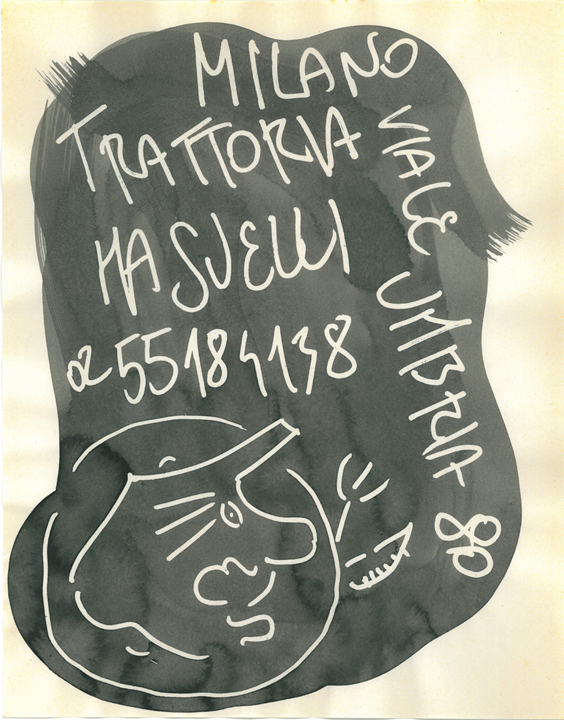 MILANO
TRATTORIA
MASUELLI
02 55184138
VIALE UMBRIA 80